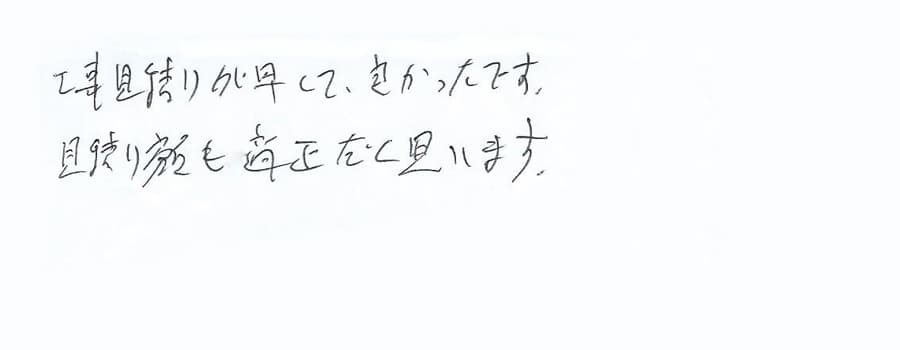 工事見積りが早くて、良かったです。
見積り額も適正だと思います。